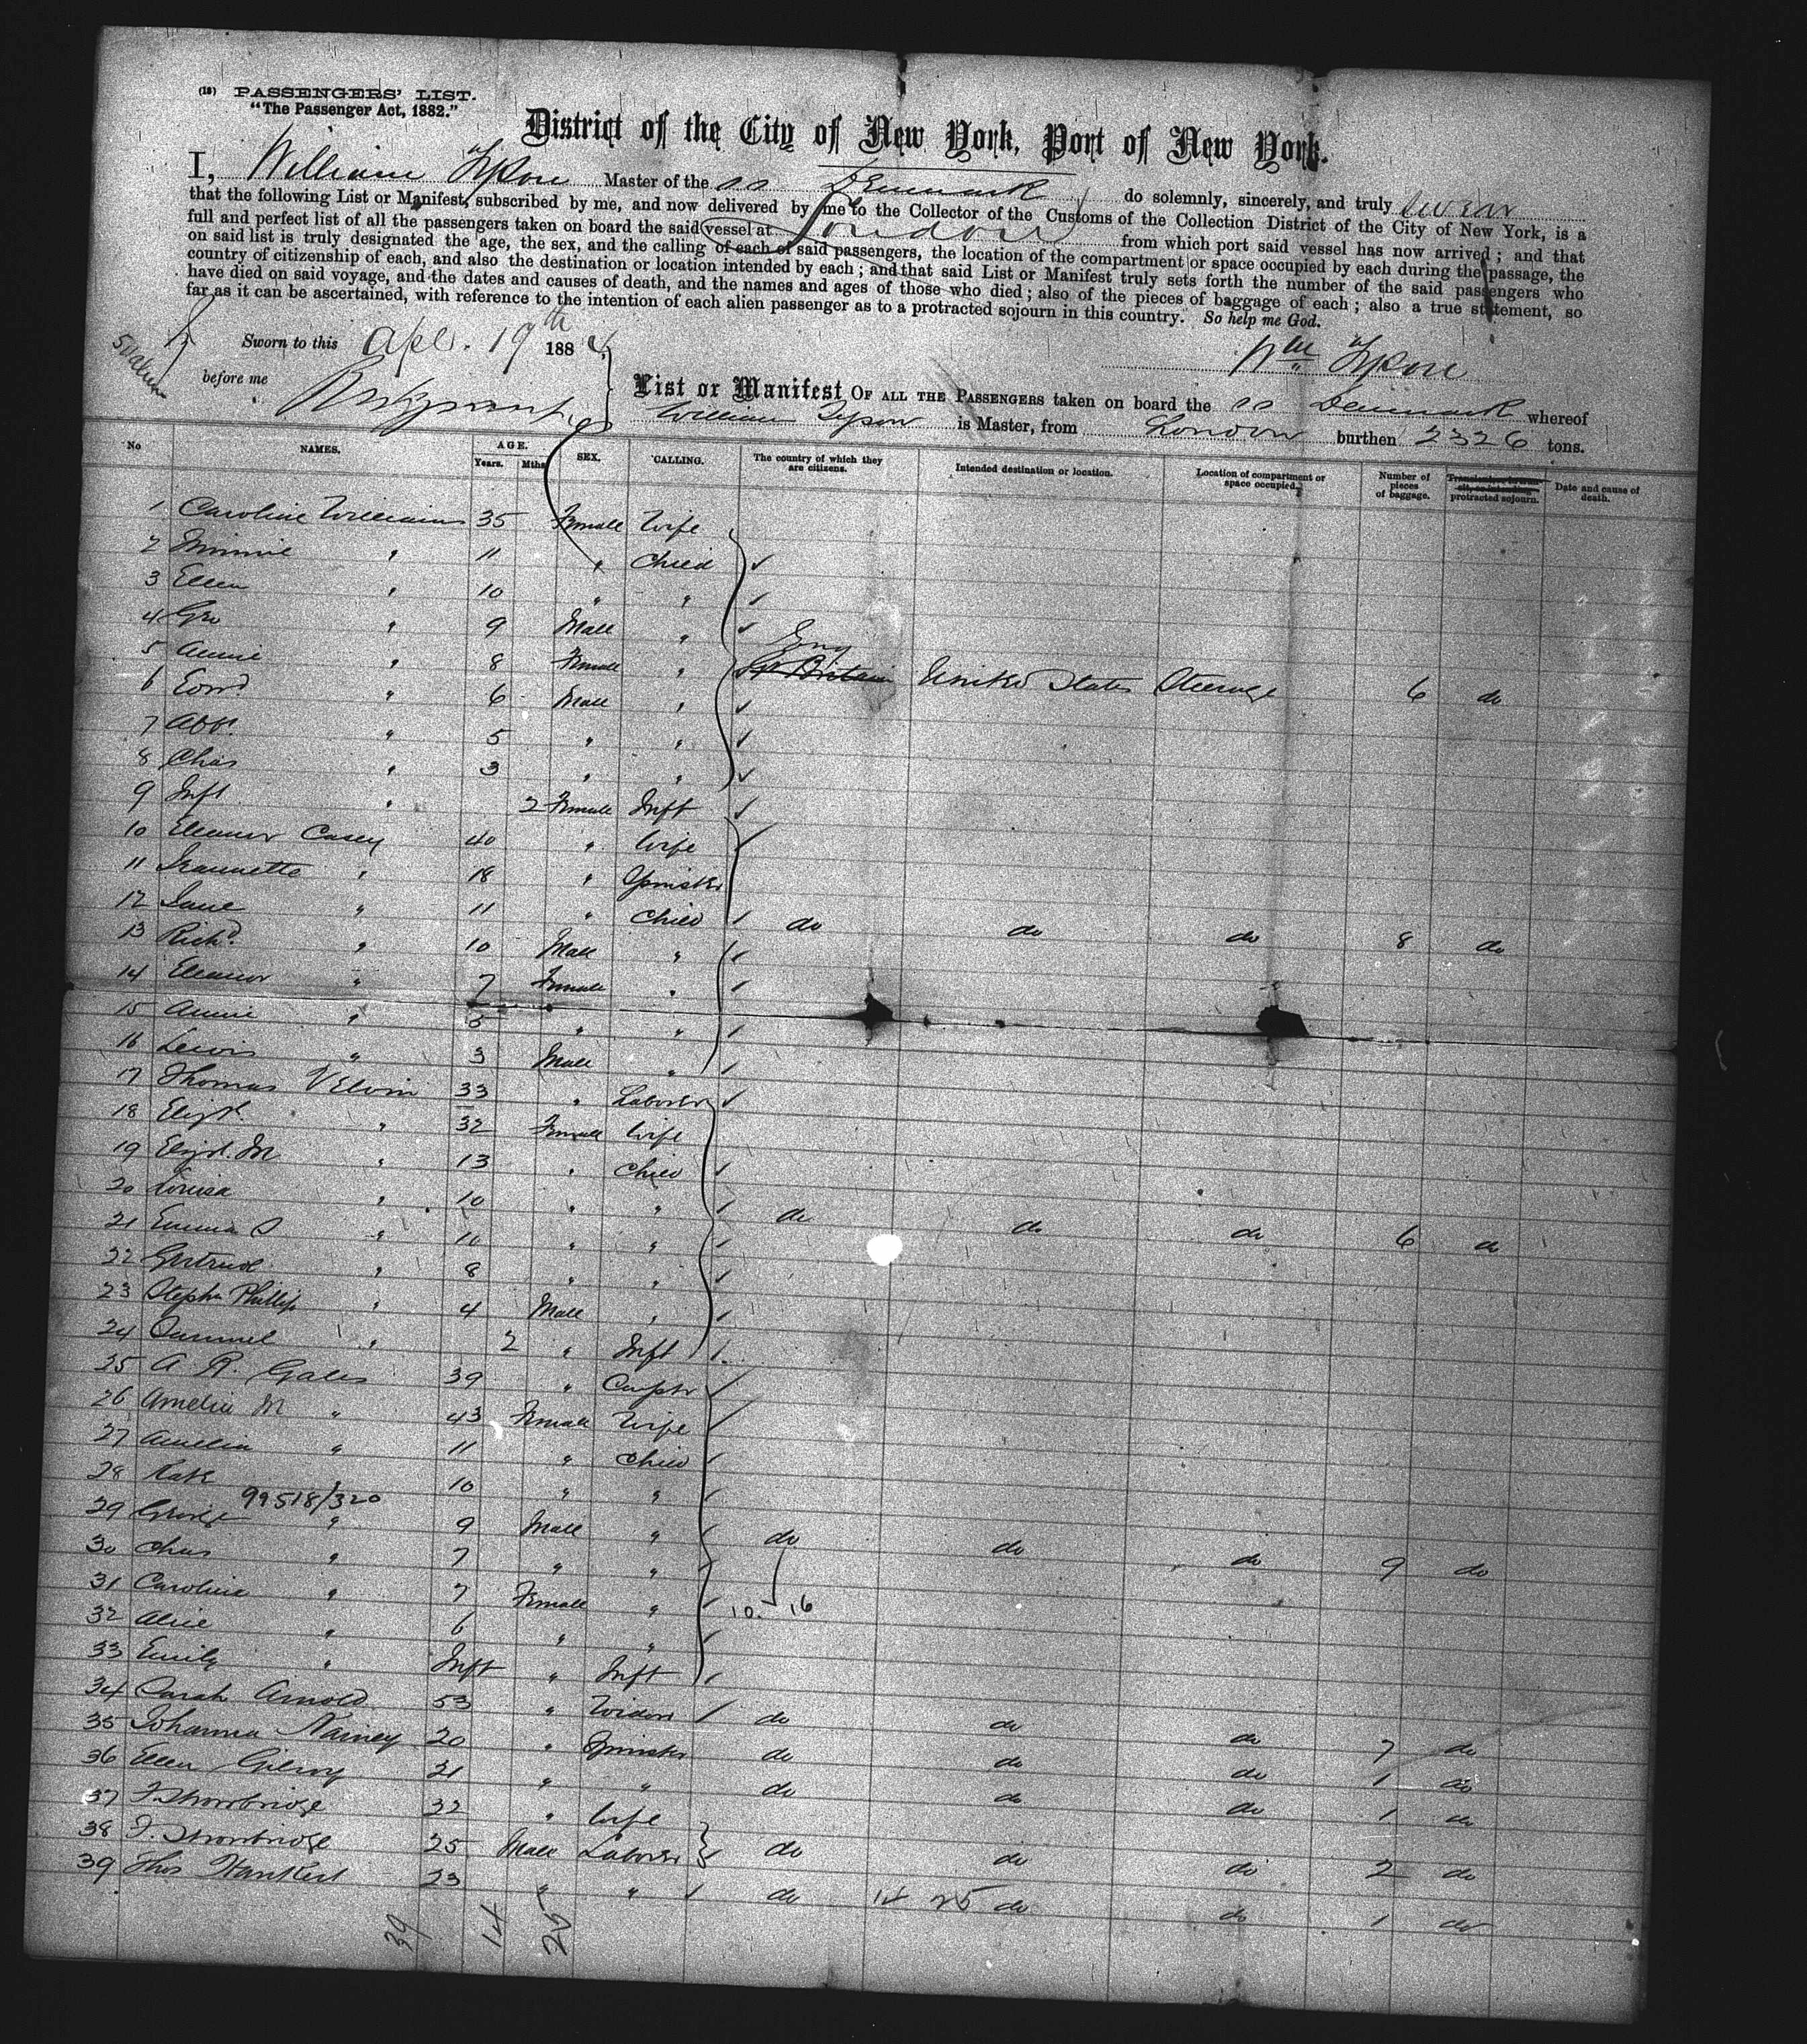 (18) PASSENGERS' LIST.
"The Passenger Act, 1882."
District of the City of New York, Port of New York.
I, William Tyson Master of the SS Denmark do solemnly, sincerely, and truly swear
that the following List or Manifest, subscribed by me, and now delivered by me to the Collector of the Customs of the Collection District of the City of New York, is a
full and perfect list of all the passengers taken on board the said vessel at London from which port said vessel has now arrived; and that
on said list is truly designated the age, the sex, and the calling of each of said passengers, the location of the compartment or space occupied by each during the passage, the
country of citizenship of each, and also the destination or location intended by each; and that said List or Manifest truly sets forth the number of the said passengers who
have died on said voyage, and the dates and causes of death, and the names and ages of those who died; also of the pieces of baggage of each; also a true statement, so
far as it can be ascertained, with reference to the intention of each alien passenger as to a protracted sojourn in this country. So help me God.
Sworn to this Apl. 19th 188
Wm Tyson
before me
List or Manifest OF ALL THE PASSENGERS taken on board the SS Denmark whereof
William Tyson is Master, from London burthen 2326 tons.
No NAMES. AGE. Years. Mths SEX. CALLING. The country of which they are citizens. Intended destination or location. Location of compartment or space occupied. Number of pieces of baggage. protracted sojourn. Date and cause of death.
1 Caroline Williams 35 Female Wife
2 Minnie " 11 " Child
3 Ellen " 10 " "
4 Geo " 9 Male "
Eng
5 Annie " 8 Female " Gt Britain United States Steerage 6 do
6 Edwd " 6 Male "
7 " 5 " "
8 Chas " 3 " "
9 Inft " 2 Female Inft
10 Eleanor Casey 40 " Wife
11 Jeannette " 18 " Spinster
12 Jane " 11 " Child do do do 8 do
13 Richd " 10 Male "
14 Eleanor " 7 Female "
15 Annie " 5 " "
16 Lewis " 3 Male "
17 Thomas Velvin 33 " Laborer
18 Elizth " 32 Female Wife
19 Elizth. M " 13 " Child
20 Louisa " 10 " " do do do 6 do
21 Emma S " 10 " "
22 Gertrude " 8 " "
23 Stephn Phillip " 4 Male "
24 Samuel " 2 " Inft
25 A R. Gales 39 " Carptr
26 Amelia M " 43 Female Wife
27 Amelia " 11 " Child
28 Kate " 10 " "
99518/320
29 George " 9 Male " do do do 9 do
30 Chas " 7 " "
31 Caroline " 7 Female " 10 16
32 Alice " 6 " "
33 Emily " Inft " Inft
34 Sarah Arnold 53 " Widow do do do 7 do
35 Johanna Nainey 20 " Spinster do do do 1 do
36 Ellen Gilroy 21 " " do do do 1 do
37 F. Strowbridge 32 " Wife
38 J. Strowbridge 25 Male Laborer do do do 2 do
39 Thos 23 " " do 14 25 do do 1 do
39 14 25